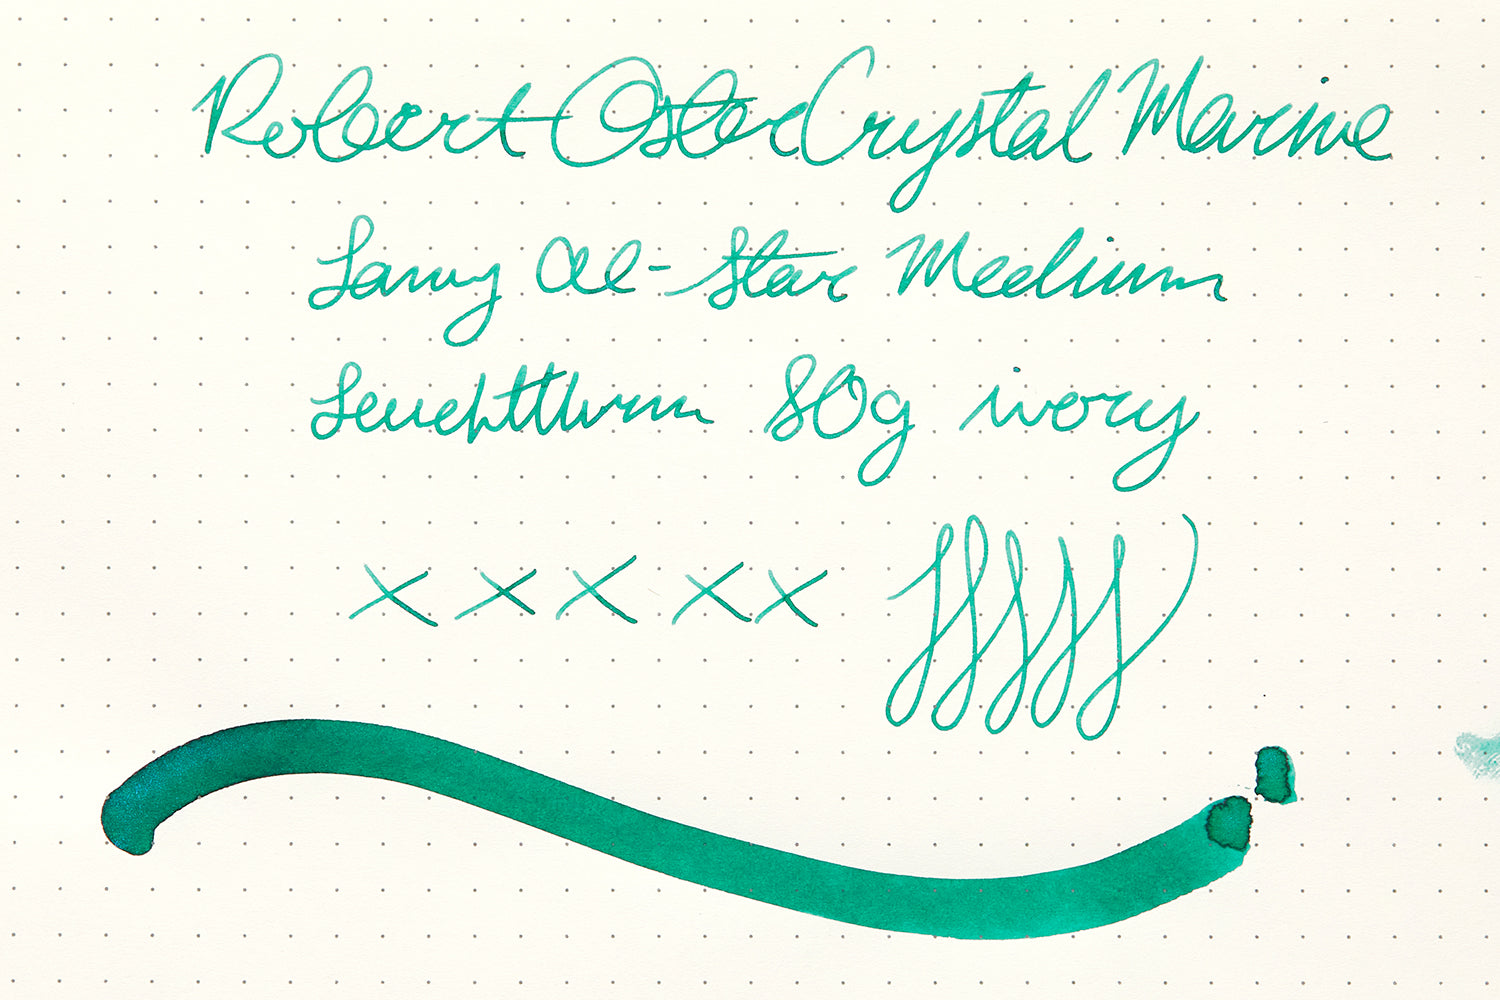 Robert Oster Crystal Marine
Lamy Al-Star Medium
Leuchtturm 80g ivory
x x x x x